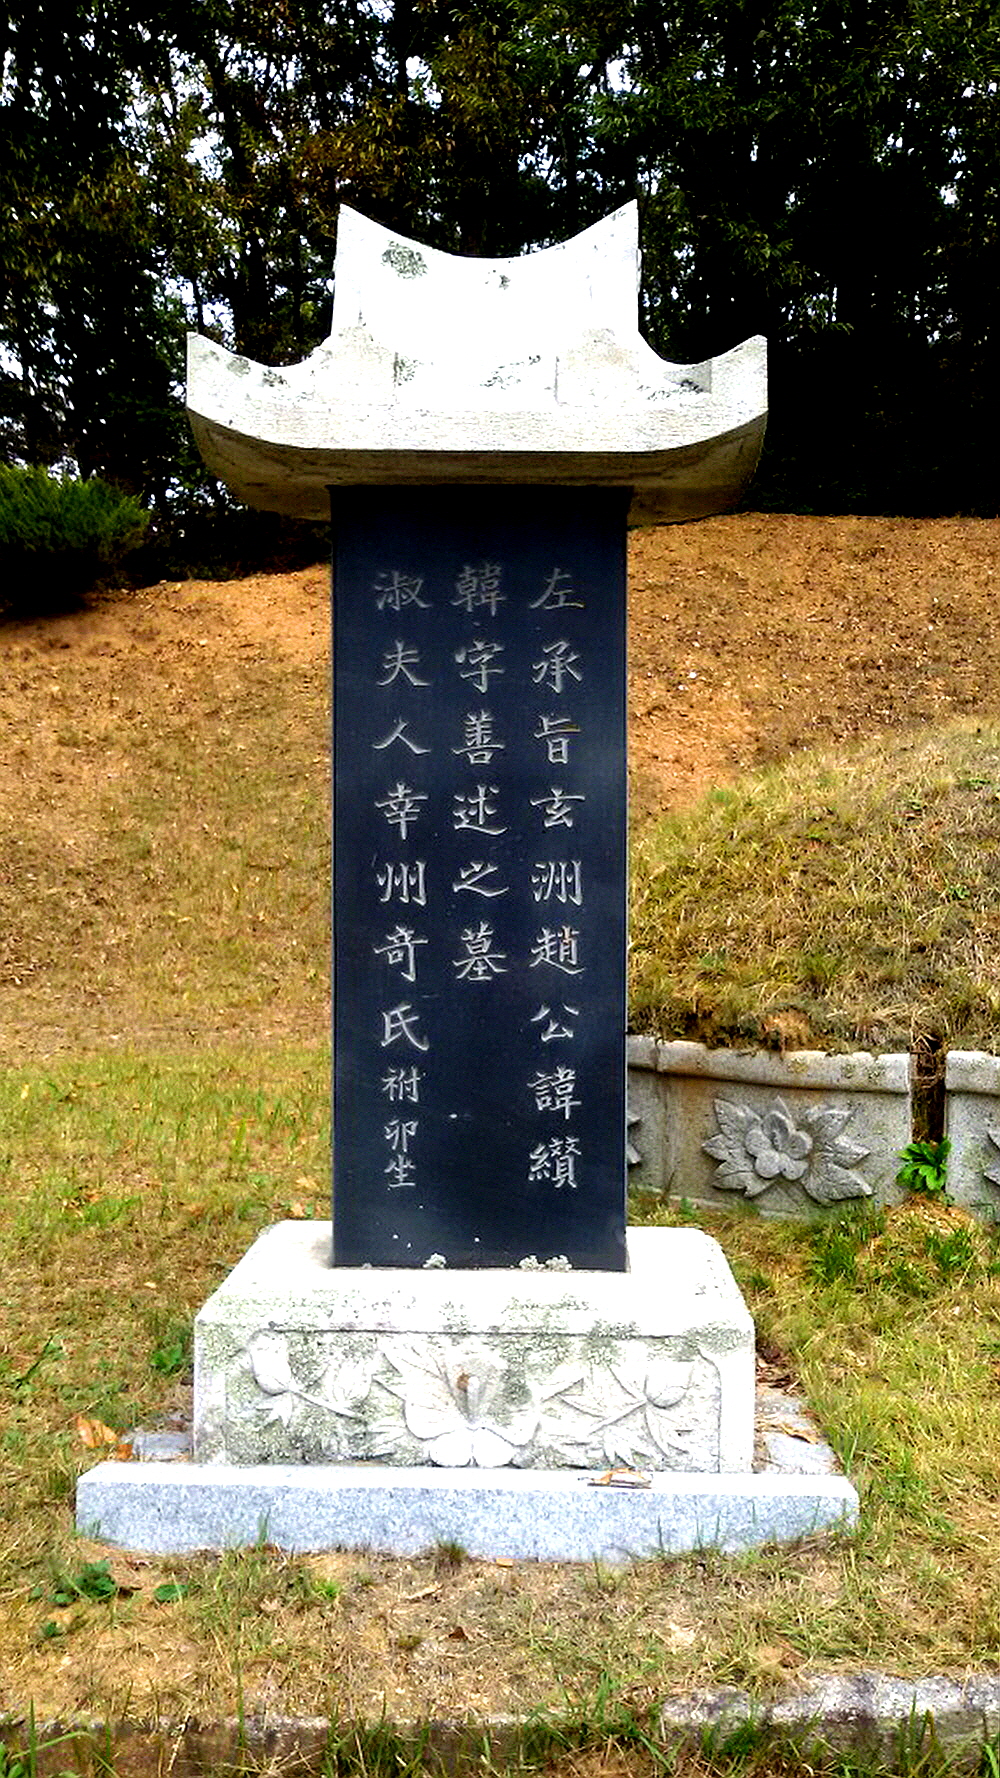 左承旨玄洲趙公諱纘
韓字善述之墓
淑夫人幸州奇氏祔卯坐